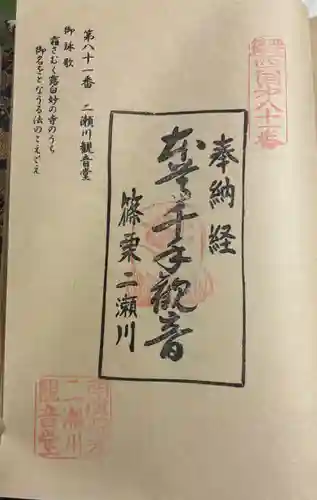 第八十一番 二瀬川観音堂
御詠歌
霜さむく露白妙の寺のうち
御名をとなうる法のこえごえ
奉納経
本尊千手観音
篠栗二瀬川
二瀬川
観音堂